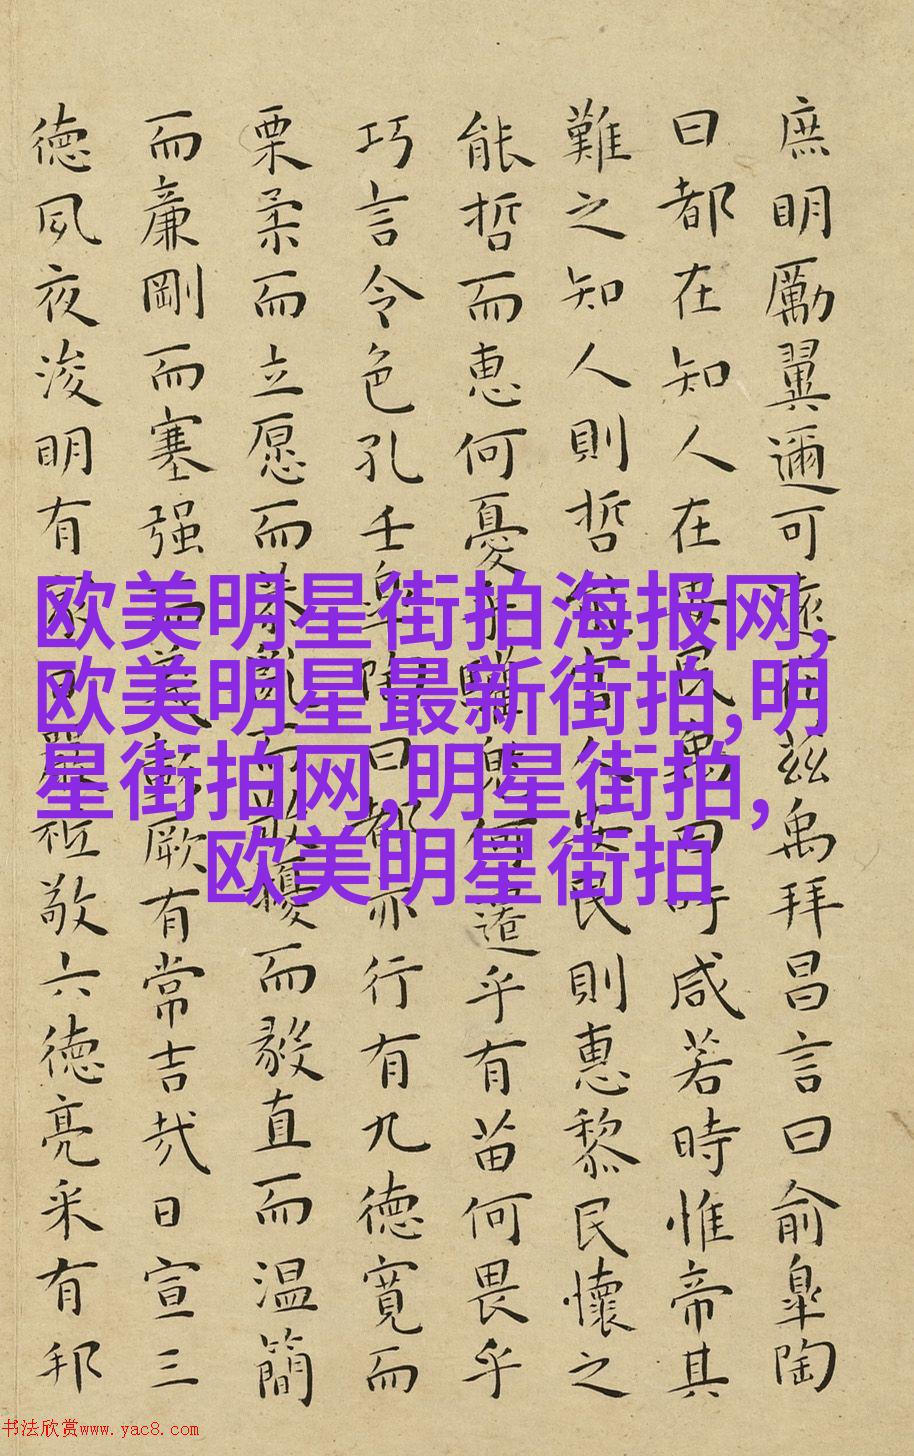 庶明勵翼邇可遠在茲禹拜昌言曰俞皐陶
曰都在知人在安民禹曰吁咸若時惟帝其
難之知人則哲能官人安民則惠黎民懷之
能哲而惠何憂乎驩兜何遷乎有苗何畏乎
巧言令色孔壬皐陶曰都亦行有九德寬而
栗柔而立愿而恭亂而敬擾而毅直而温簡
而廉剛而塞强而義彰厥有常吉哉日宣三
德夙夜浚明有家日嚴祗敬六德亮采有邦
欧美明星街拍海报网,
欧美明星最新街拍,明
星街拍网,明星街拍,
欧美明星街拍
书法欣赏www.yac8.com